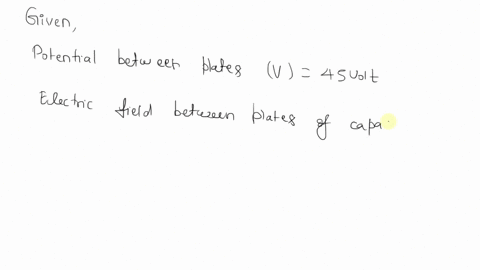 Given,
Potential between plates (V) = 45 volt
Electric field between plates of capa